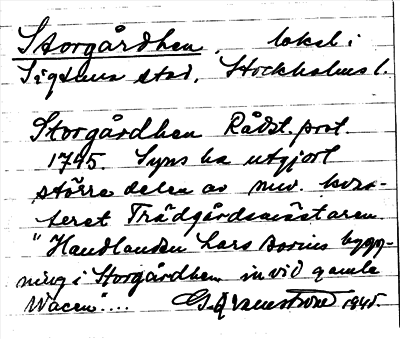 Storgårdhen, lokal i
Sigtuna stad, Stockholms l.
Storgårdhen Rådst. prot.
1745. Syns ha utgjort
större delen av nuv. kvar-
teret Trädgårdsmästaren.
"Handlanden Lars Borins bygg-
ning i Storgårdhen invid gamle
Wacen"....  1945.